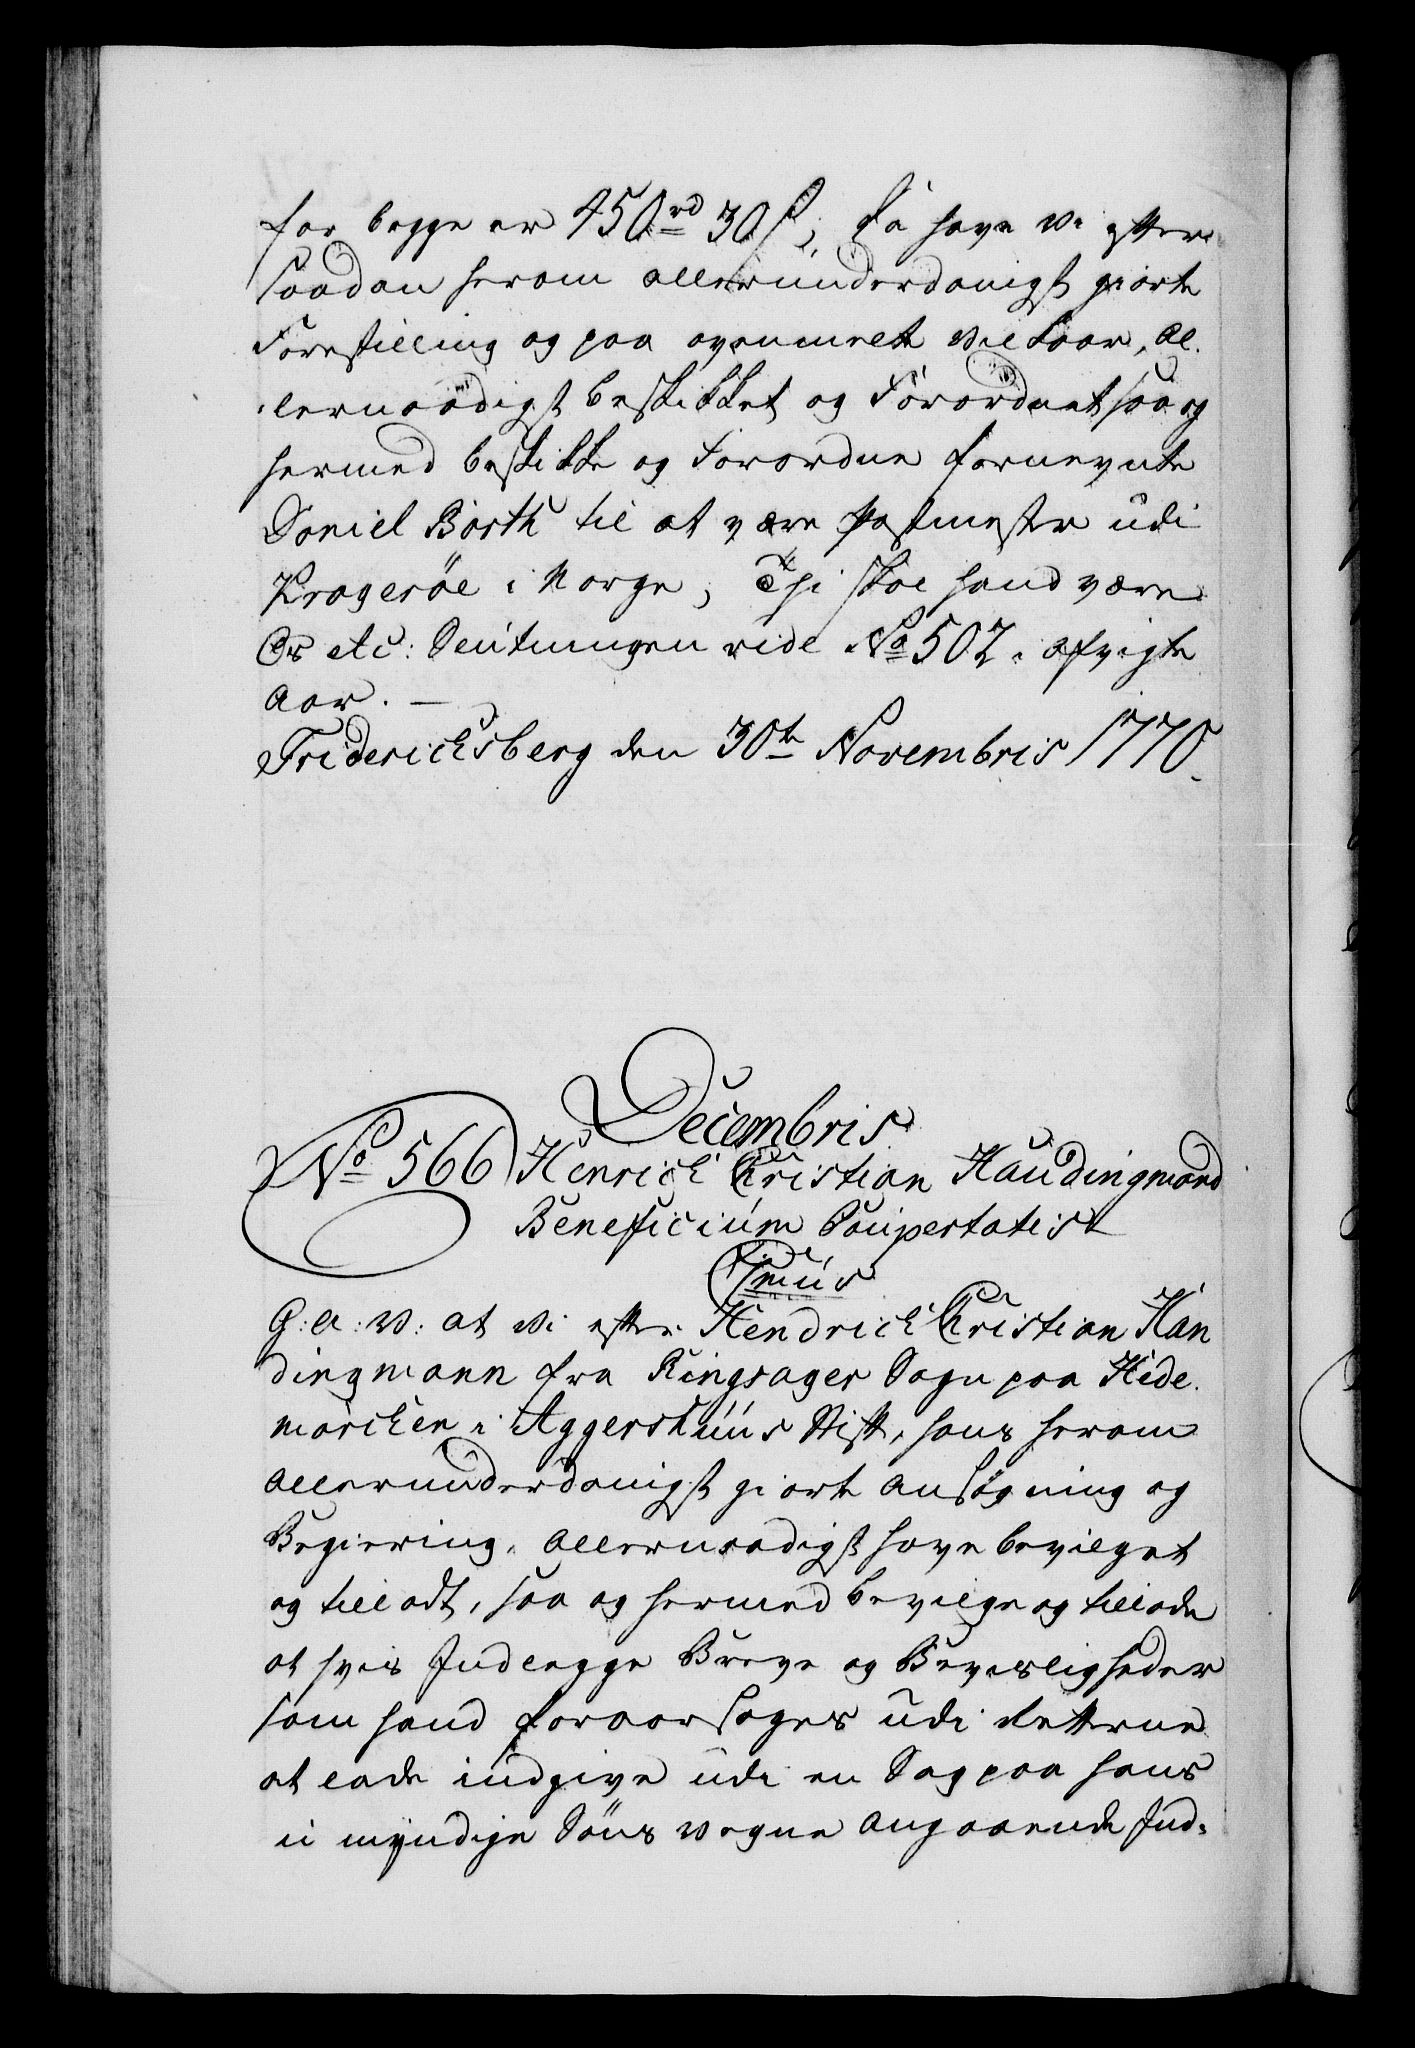 for begge er 450rd 30 s; Da have Vi efter
saadan herom allerunderdanigst giorte
Forestilling og paa ovenmelt Vilkaar, Al-
lernaadigst beskikket og Forordnet saa og
hermed beskikke og Forordne fornevnte
Daniel Barth til at være Postmester udi
Kragerøe i Norge, Thi skal hand være
Os etc: Slutningen vide No 502. afvigte
Aar. —
Friderichsberg den 30te Novembris 1770.
Decembris
No 566 Henrich Christian Haudingmand
Beneficium Paupertatis
1mus
G: A: V: at Vi efter Hendrich Christian Han
dingmann fra Ringsager Sogn paa Hede-
marcken i Aggershuus Stift, hans herom
allerunderdanigst giorte Ansøgning og
Begiering, Allernaadigst have bevilget
og tilladt, saa og hermed bevilge og tillade
at hvis Indlegge Breve og Bevisligheder
som hand foraarsages udi Retterne
at lade indgive udi en Sag paa hans
umyndige Søns Vegne angaaende Ind-